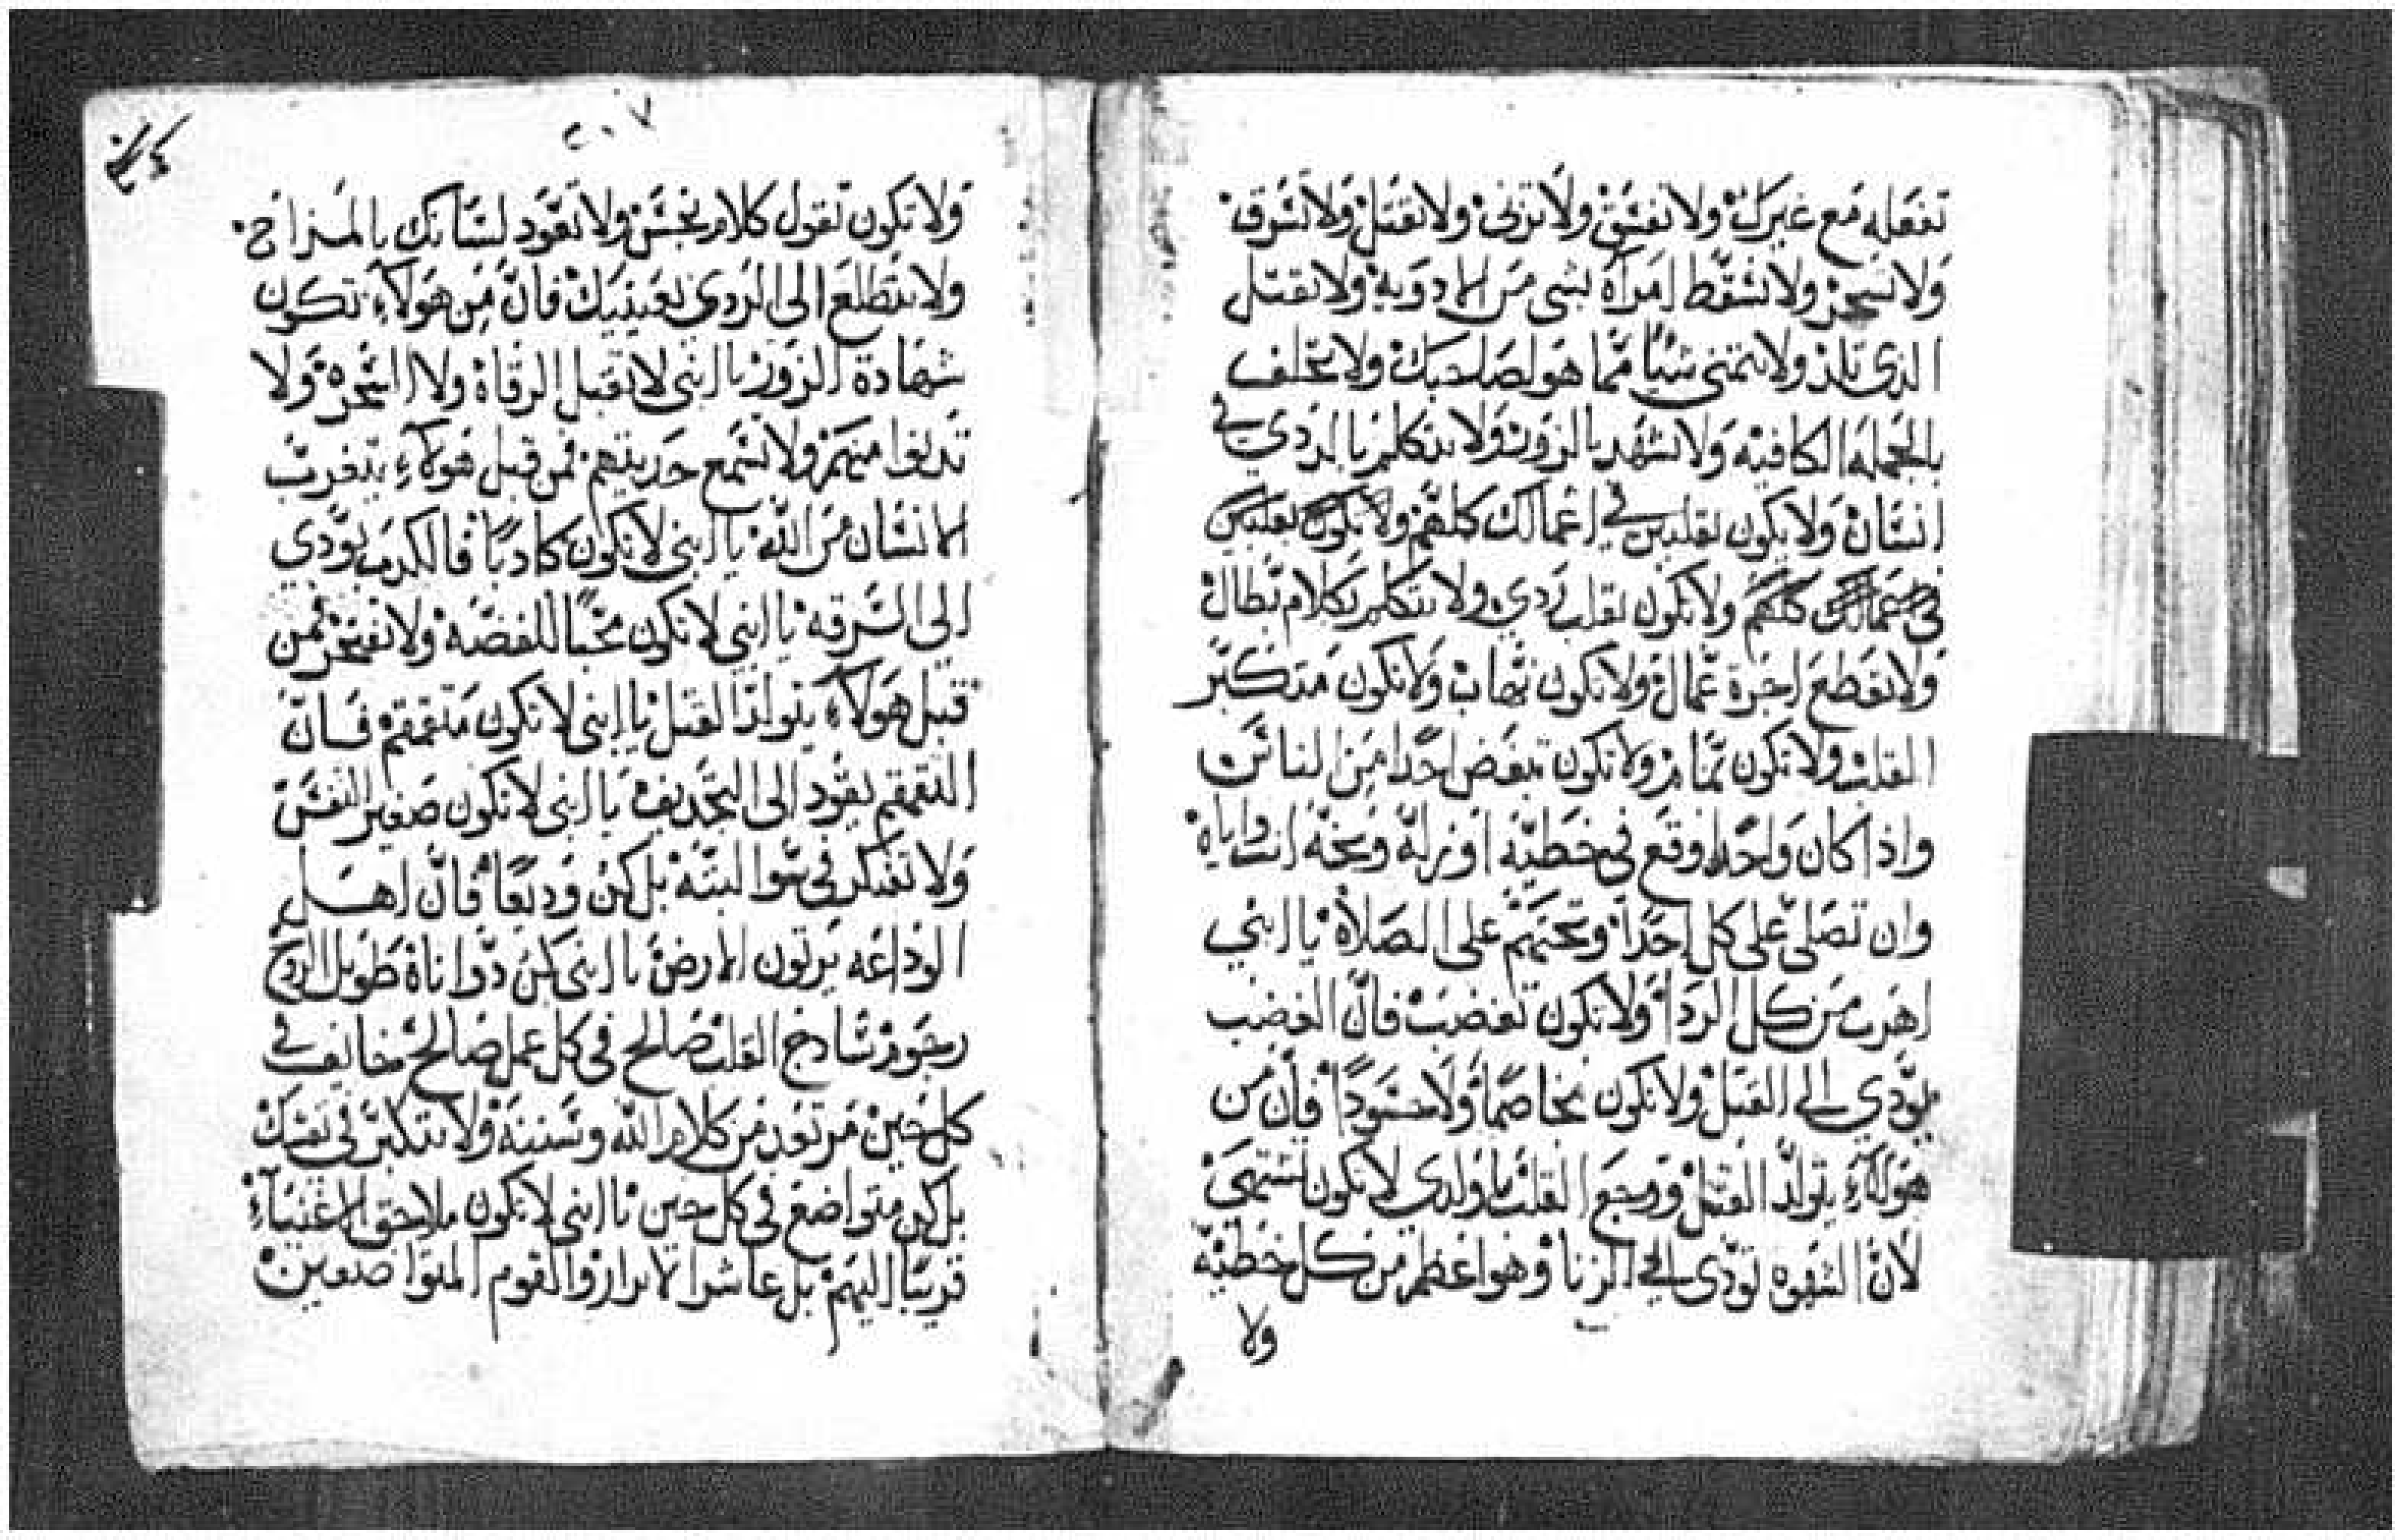 تفعله مع غيرك ولا تفسق ولا تزني ولا تقتل ولا تسرق
ولا تسحر ولا تسقط امراة بشي من الادوية ولا تقتل
الذي تلد ولا تتمنى شيًا مما هو لصاحبك ولا تحلف
بالجمله الكافيه ولا تشهد بالزور ولا تتكلم بالردي في
انسان ولا يكون بقلبين في اعمالك كلهم ولا تكون بقلبين
في كلهم ولا تكون بقلب ردي ولا تتكلم بكلام بطال
ولا تقطع اجرة عمال ولا تكون نهاب ولا تكون متكبر
القلب ولا تكون نمام ولا تكون تبغض احدا من الناس
واذا كان واحدا وقع في خطيه او زله وبخه انت واياه
وان تصلي على كل احدا وتحتهم على الصلاة يا ابني
اهرب من كل الردا ولا تكون تغضب فان الغضب
يودي الي القتل ولا تكون مخاصمًا ولا حسودًا فان من
هولاء يتولد القتل ووجع القلب يا ولدي لا تكون تشتهي
لان الشهوه تودي الي الزنا وهو اعظم من كل خطيه
ولا
٢٠٧
ولا تكون تقول كلام نجس ولا تعود لسانك بالمزاح
ولا تتطلع الى الردي بعينيك فان من هولاء تكون
شهادة الزور يا ابني لا تقبل الرقاة ولا السحره ولا
تدنوا منهم ولا تسمع حديثهم فمن قبل هولاء يتغرب
الانسان من الله يا ابني لا تكون كادبًا فالكدب يودي
الى السرقه يا ابني لا تكون محبًا للفضه ولا تفتخر فمن
قبل هولاء يتولد القتل يا ابني لا تكون متقمقم فان
التقمقم يقود الى التجديف يا ابني لا تكون صغير النفس
ولا تفكر في سوا البته بل كن وديعًا فان اهل
الوداعه يرتون الارض يا ابني كن دوا اناة طويل الروح
رحوم سادج القلب صالح في كل عمل صالح خايف في
كل حين مرتعد من كلام الله وسننه ولا تتكبر في نفسك
بل كن متواضع في كل حين يا ابني لا تكون ملاحق الاغنياء
قريبًا اليهم بل عاشر الابرار والقوم المتواضعين